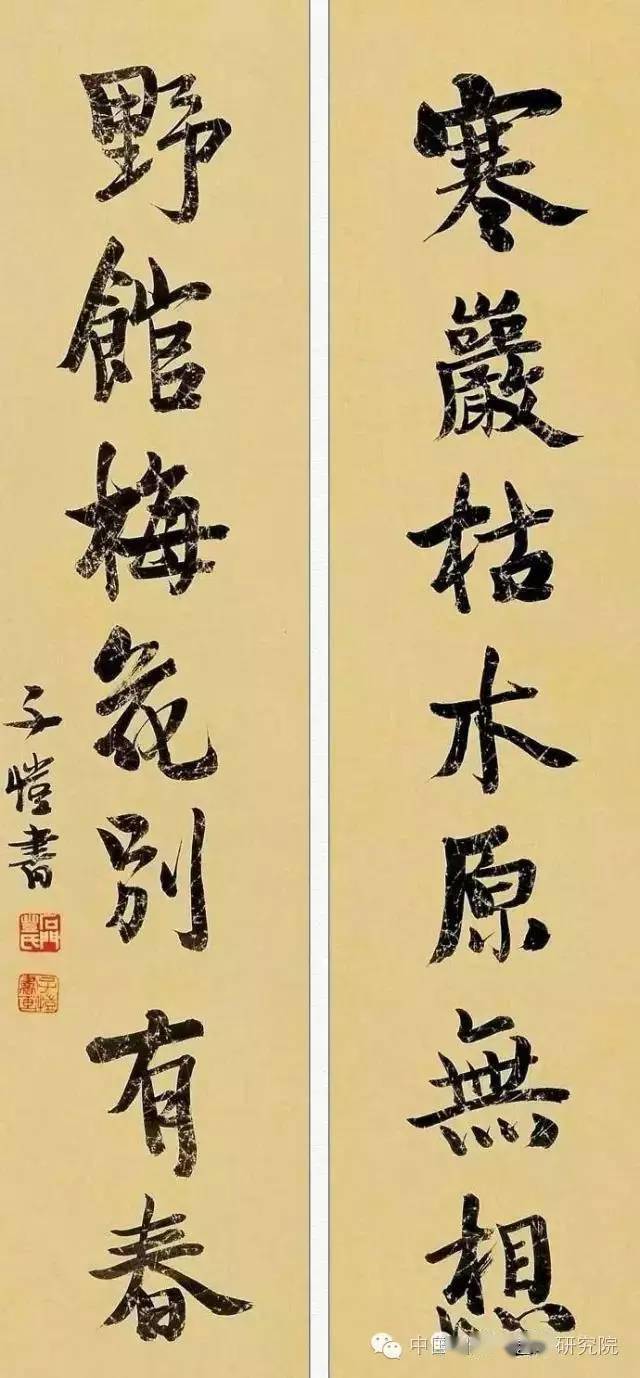 寒巖枯木原無想
野館梅花別有春
子愷書
石門豐氏
子愷書画
中国
研究院